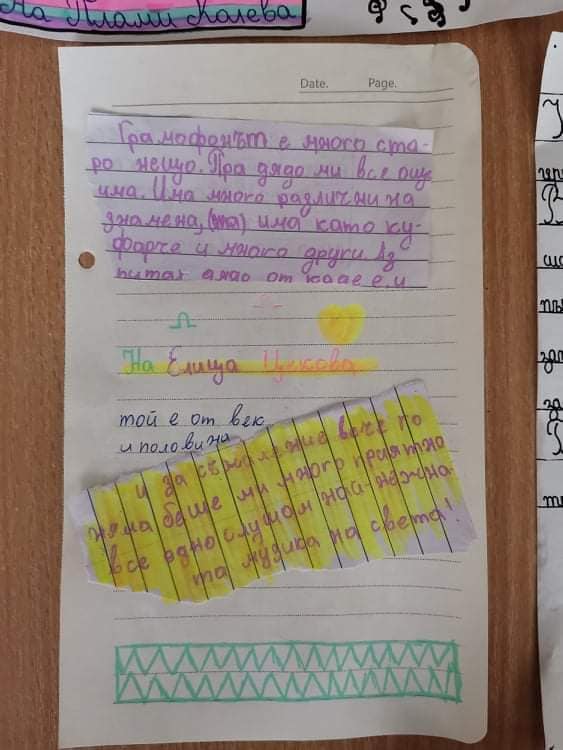 На Плами Колева
Date. Page.
Грамофонът е много ста-
ро нещо. Пра дядо ми все още
има. Има много различни на
знамена, има като ку-
фарче и много други Аз
питах дядо от кога е и
На Елица Цекова
той е от век
и половина
и за съжаление вече го
няма беше ми много приятно
все едно слушам най-нежна-
та музика на света!